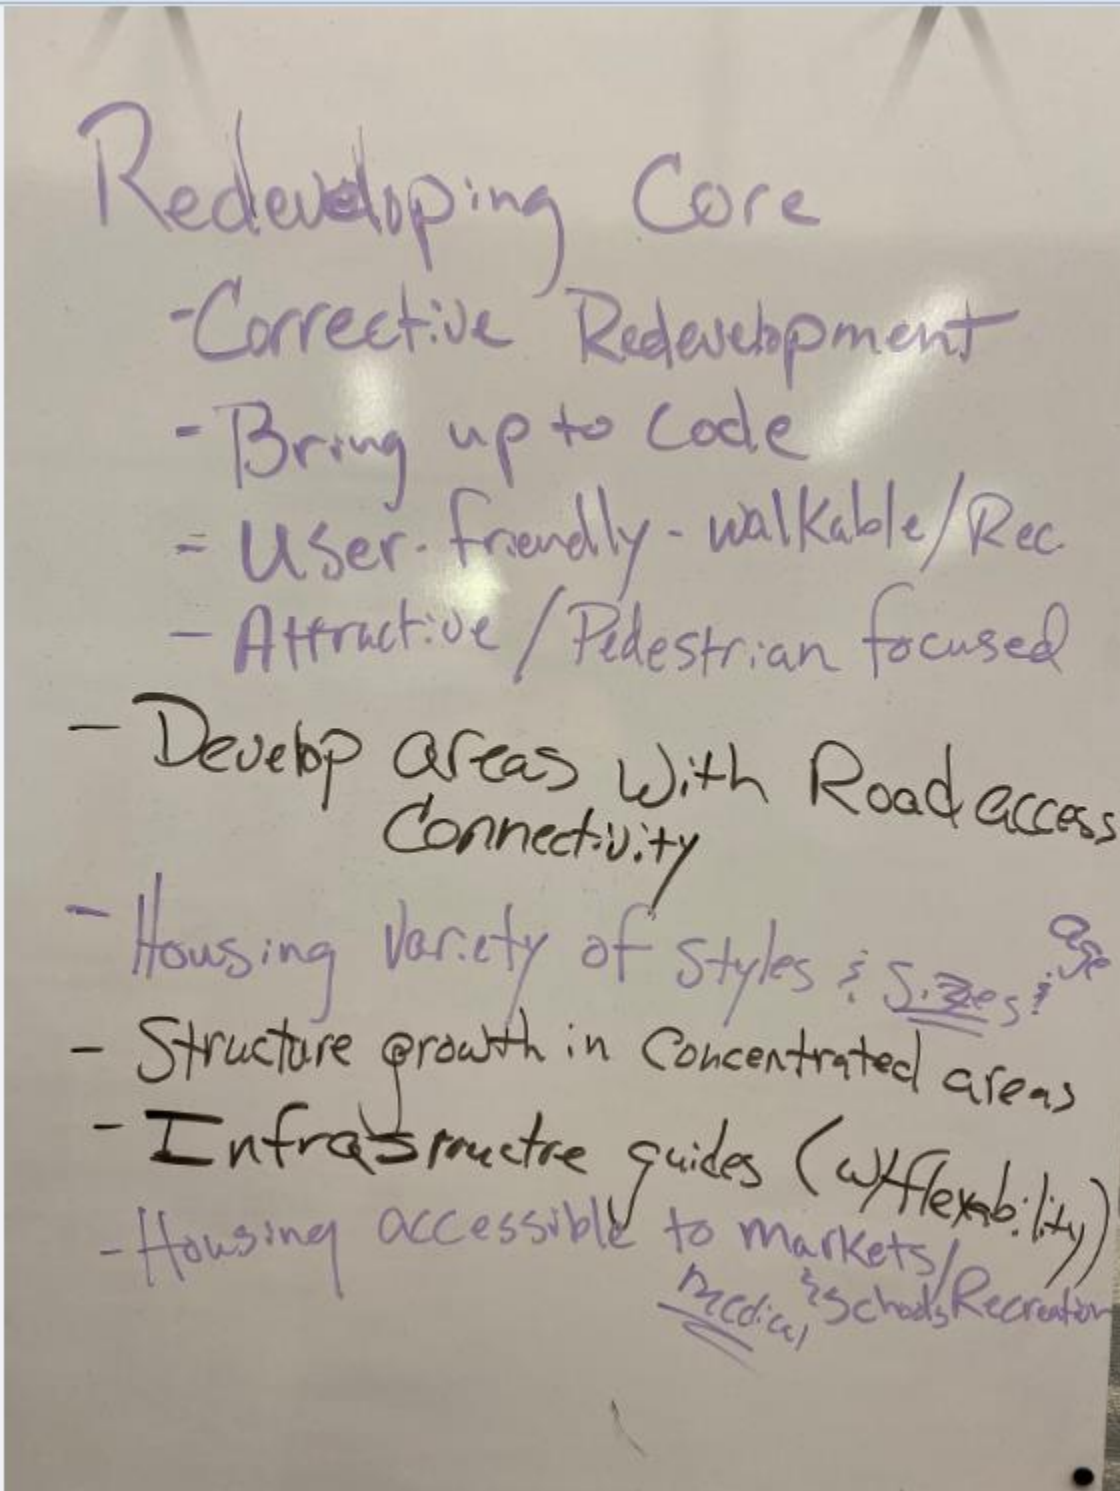 Redeveloping Core
- Corrective Redevelopment
- Bring up to Code
- User-friendly - walkable/Rec.
- Attractive / Pedestrian focused
- Develop areas with Road access
Connectivity
- Housing variety of styles & Sizes & age
- Structure growth in Concentrated areas
- Infrastructre guides (w/flexability)
- Housing accessible to markets/
Medical & Schools Recreation